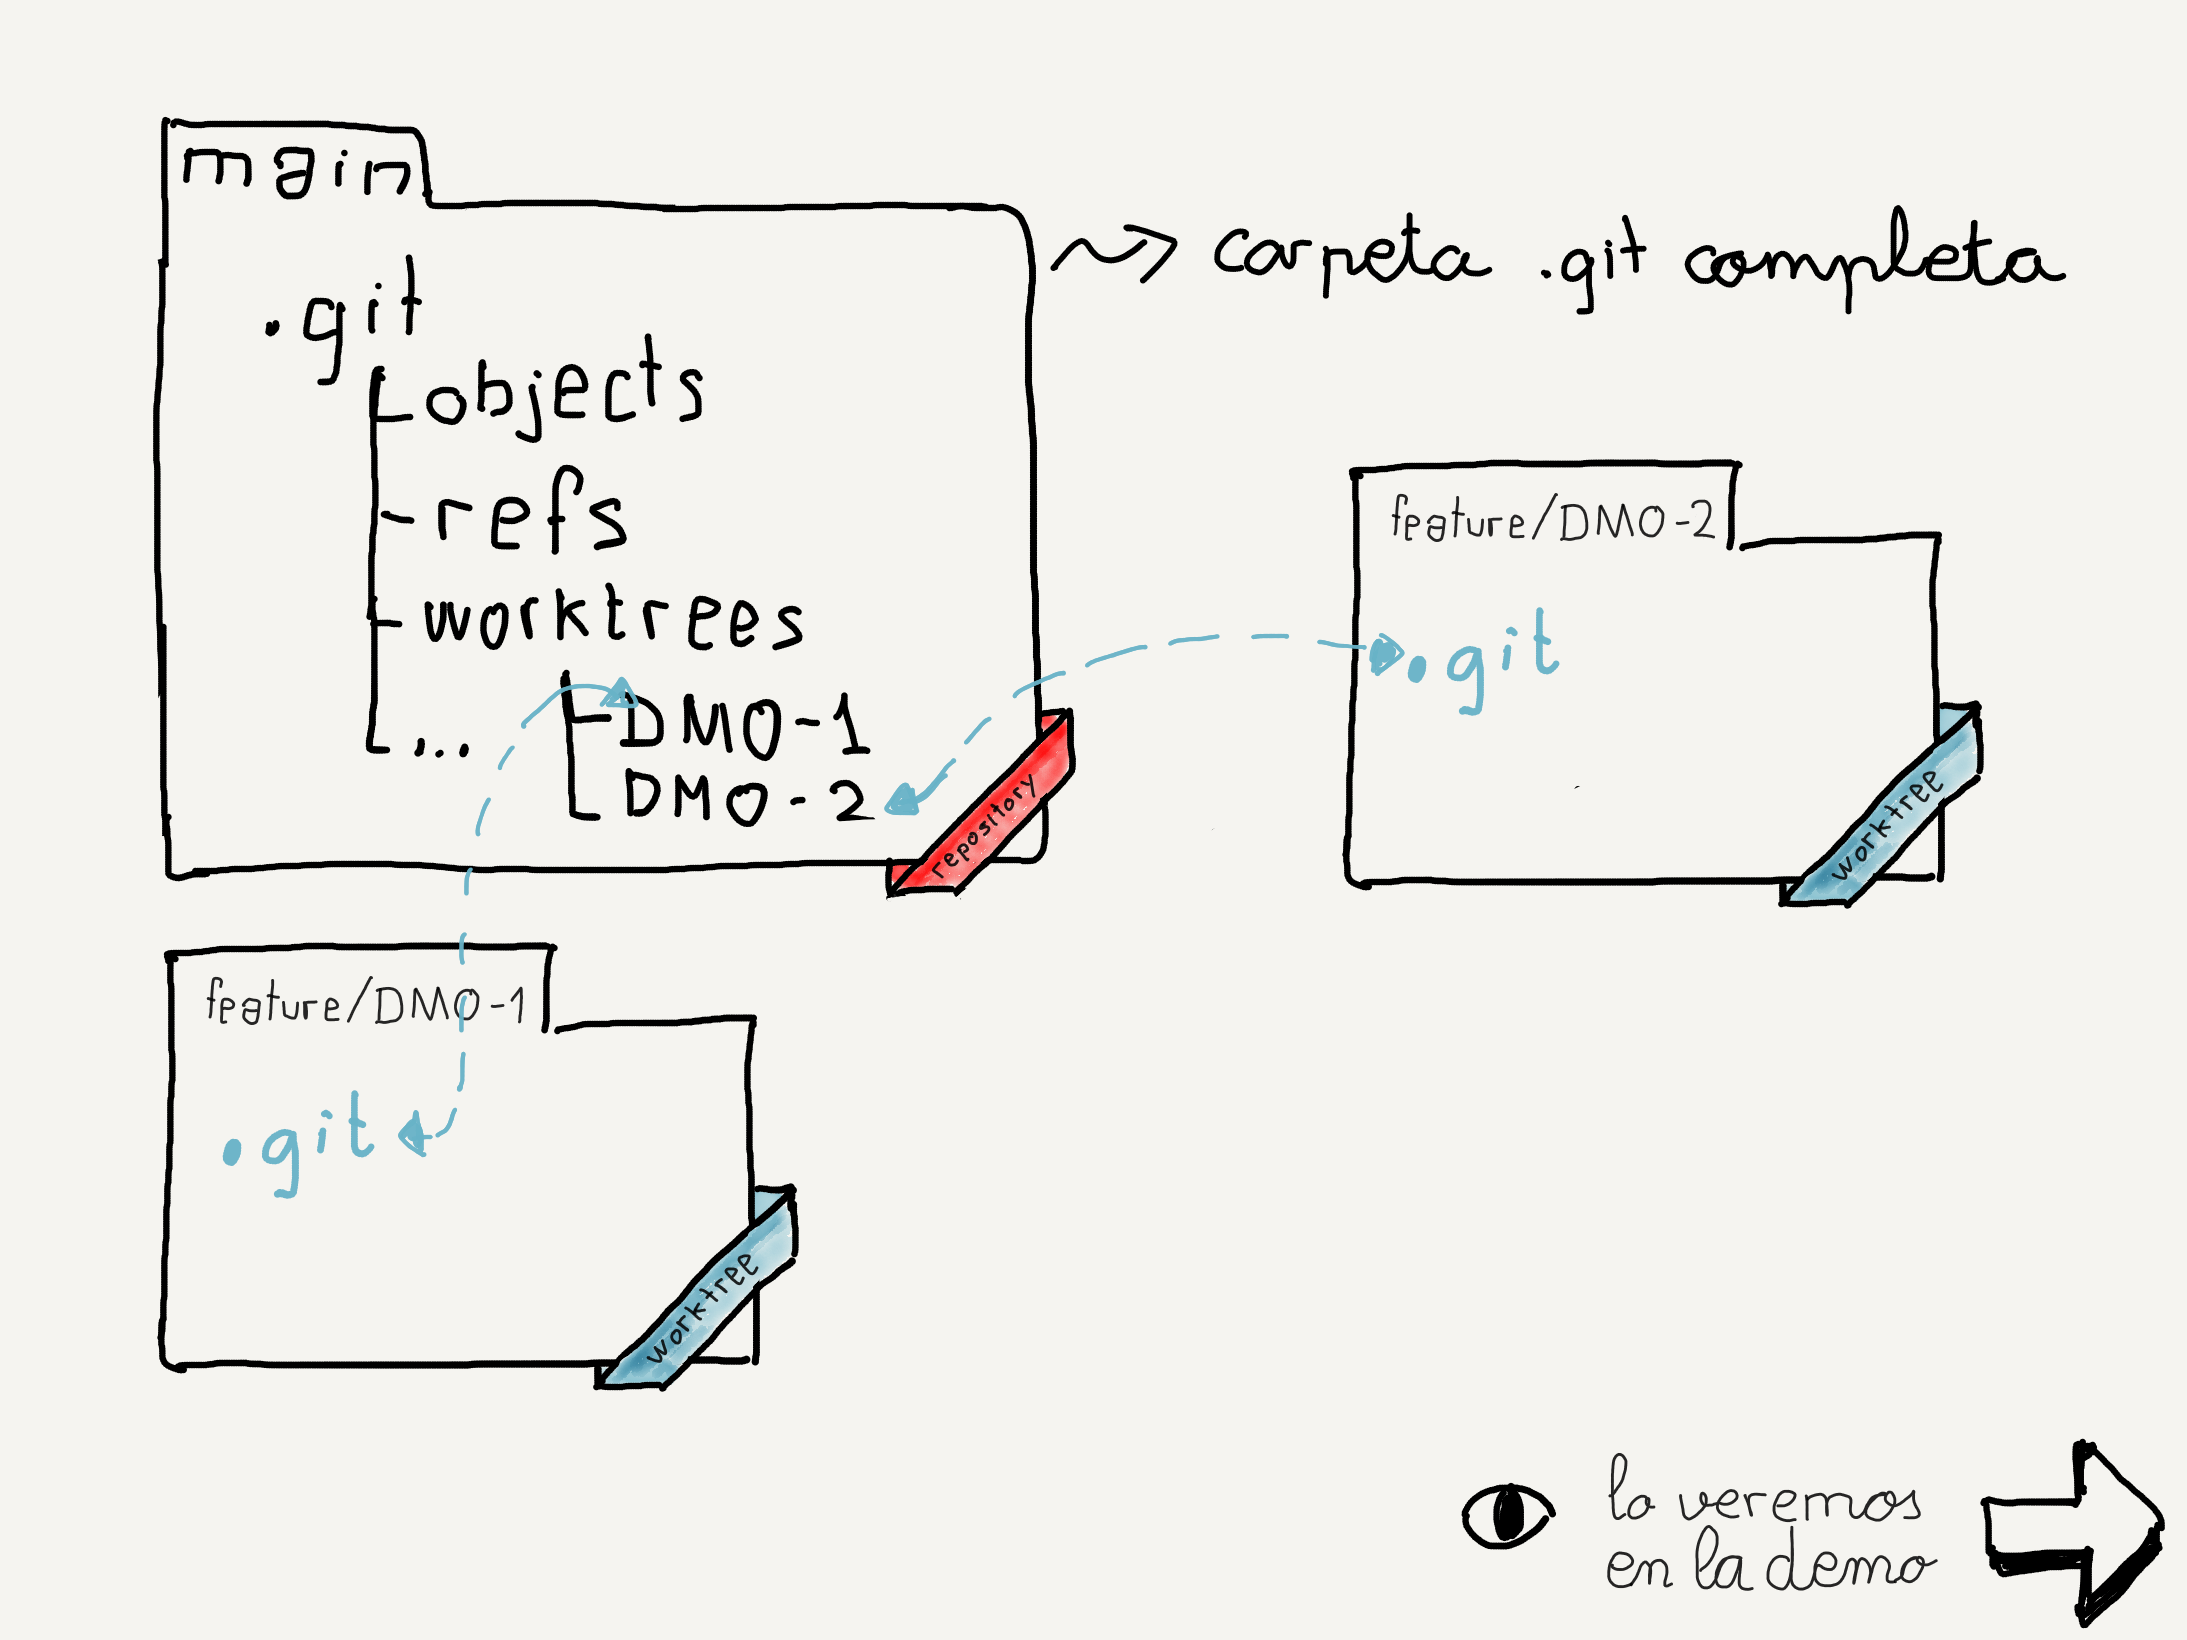 main
.git
objects
refs
worktrees
DMO-1
...
DMO-2
repository
carpeta .git completa
feature/DMO-2
.git
worktree
feature/DMO-1
.git
worktree
lo veremos
en la demo